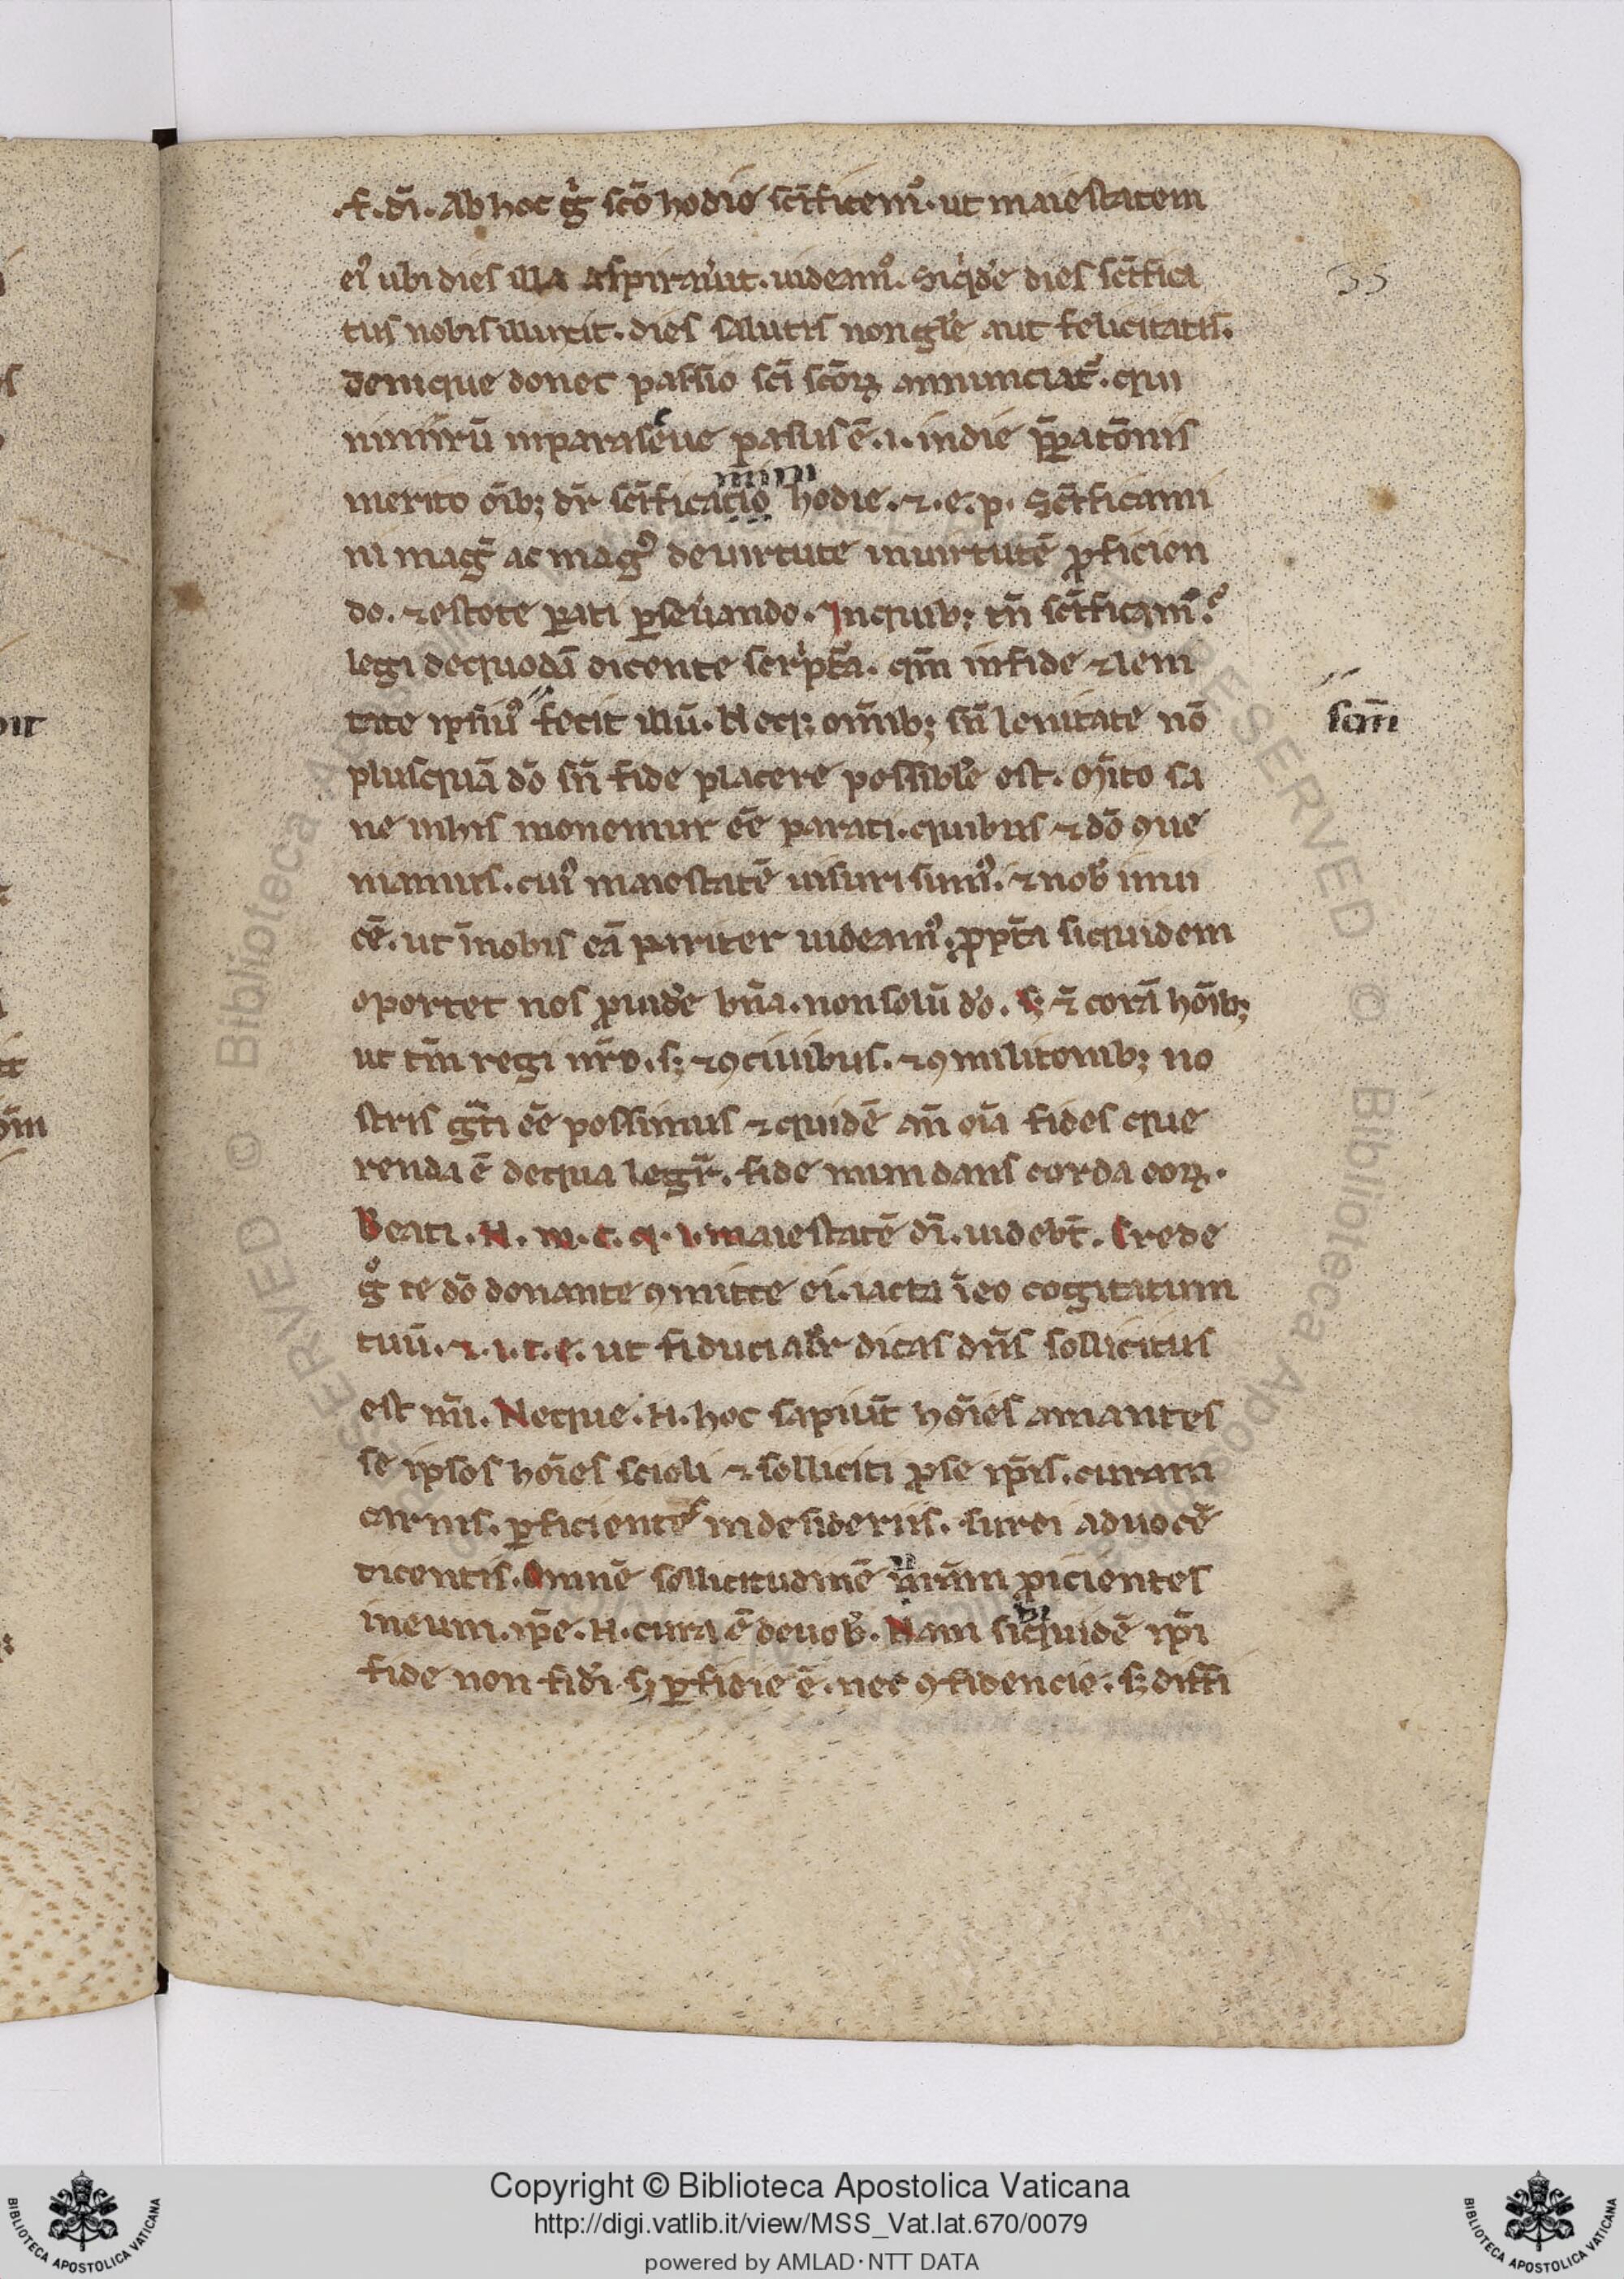 .f. dı̄. Ab hoc g̊ sc̄o hodie sc̄ificem᷒. ut maiestatem
ei᷒ ubi dies illa aspirau͛it. uideam᷒. Siq̇de dies sc̄ifica
tus nobis illuxit. dies salutis non gl̄e aut felicitatis.
denique donec passio sc̄i sc̄oꝝ annunciat᷑. qui
nimirū in parasceue passus ē. i. in die p̄paratōnis
merito om̄ib; dr̄ sc̄ificacio mini hodie. ⁊. e. p. Sc̄ificami
ni mag̅ ac mag᷒ de uirtute in uirtutē ꝓficien
do. ⁊ estote ꝑati ꝑseuando. In quib; tn̄ sc̄ificam᷒?
legi de quodā dicente scriptͣa. qm̄ in fide ⁊ leni
tate ipsius fecit illū. Neq; omīb; sn̄ lenitate nō
scm̄
plusquā dō sn̄ fide placere possibile est. Merito sa
ne in his monemur eē parati. quibus ⁊ dō ꝯue
niamus. cui᷒ maiestatē uisuri sum᷒. ⁊ nob̄ inui
cē. ut ī nobis eā pariter uideam᷒. ꝓpt̄a siquidem
oportet nos ꝓuidē bn̄a. non solū dō. s; ⁊ corā hōib;
ut tm̄ regi nr̄o. s; ⁊ ꝯciuibus. ⁊ ꝯmilitonib; no
stris gͣti eē possimus ⁊ quidē an̄ oı̄a fides que
renda ē de qua legit᷑. fide mundans corda eoꝝ.
Beati. N. m. c. q. i. maiestatē dı̄. uidebt̄. Crede
g̊ te dō donante ꝯmitte ei. iacta ī eo cogitatum
tuū. ⁊. i. t. e. ut fiducialr̄ dicas dn̄s sollicitus
est mı̄. Neque. N. hoc sapiūt hōies amantes
se ipsos hōies scioli ⁊ solliciti ꝓ se ip̄is. curam
carnis. ꝑficientes in desideriis. surdi ad uocē
dicentis. Omnē sollicitudinē ur̄am ꝓicientes
in eum. ip̄e. N. cura ē de uob̄. Nam sibi quidē ip̄i
fide non fidı̄ h ꝑfidie ē. nec ꝯfidencie. s; diffi
Copyright © Biblioteca Apostolica Vaticana
http://digi.vatlib.it/view/MSS_Vat.lat.670/0079
powered by AMLAD · NTT DATA
BIBLIOTECA APOSTOLICA VATICANA
BIBLIOTECA APOSTOLICA VATICANA